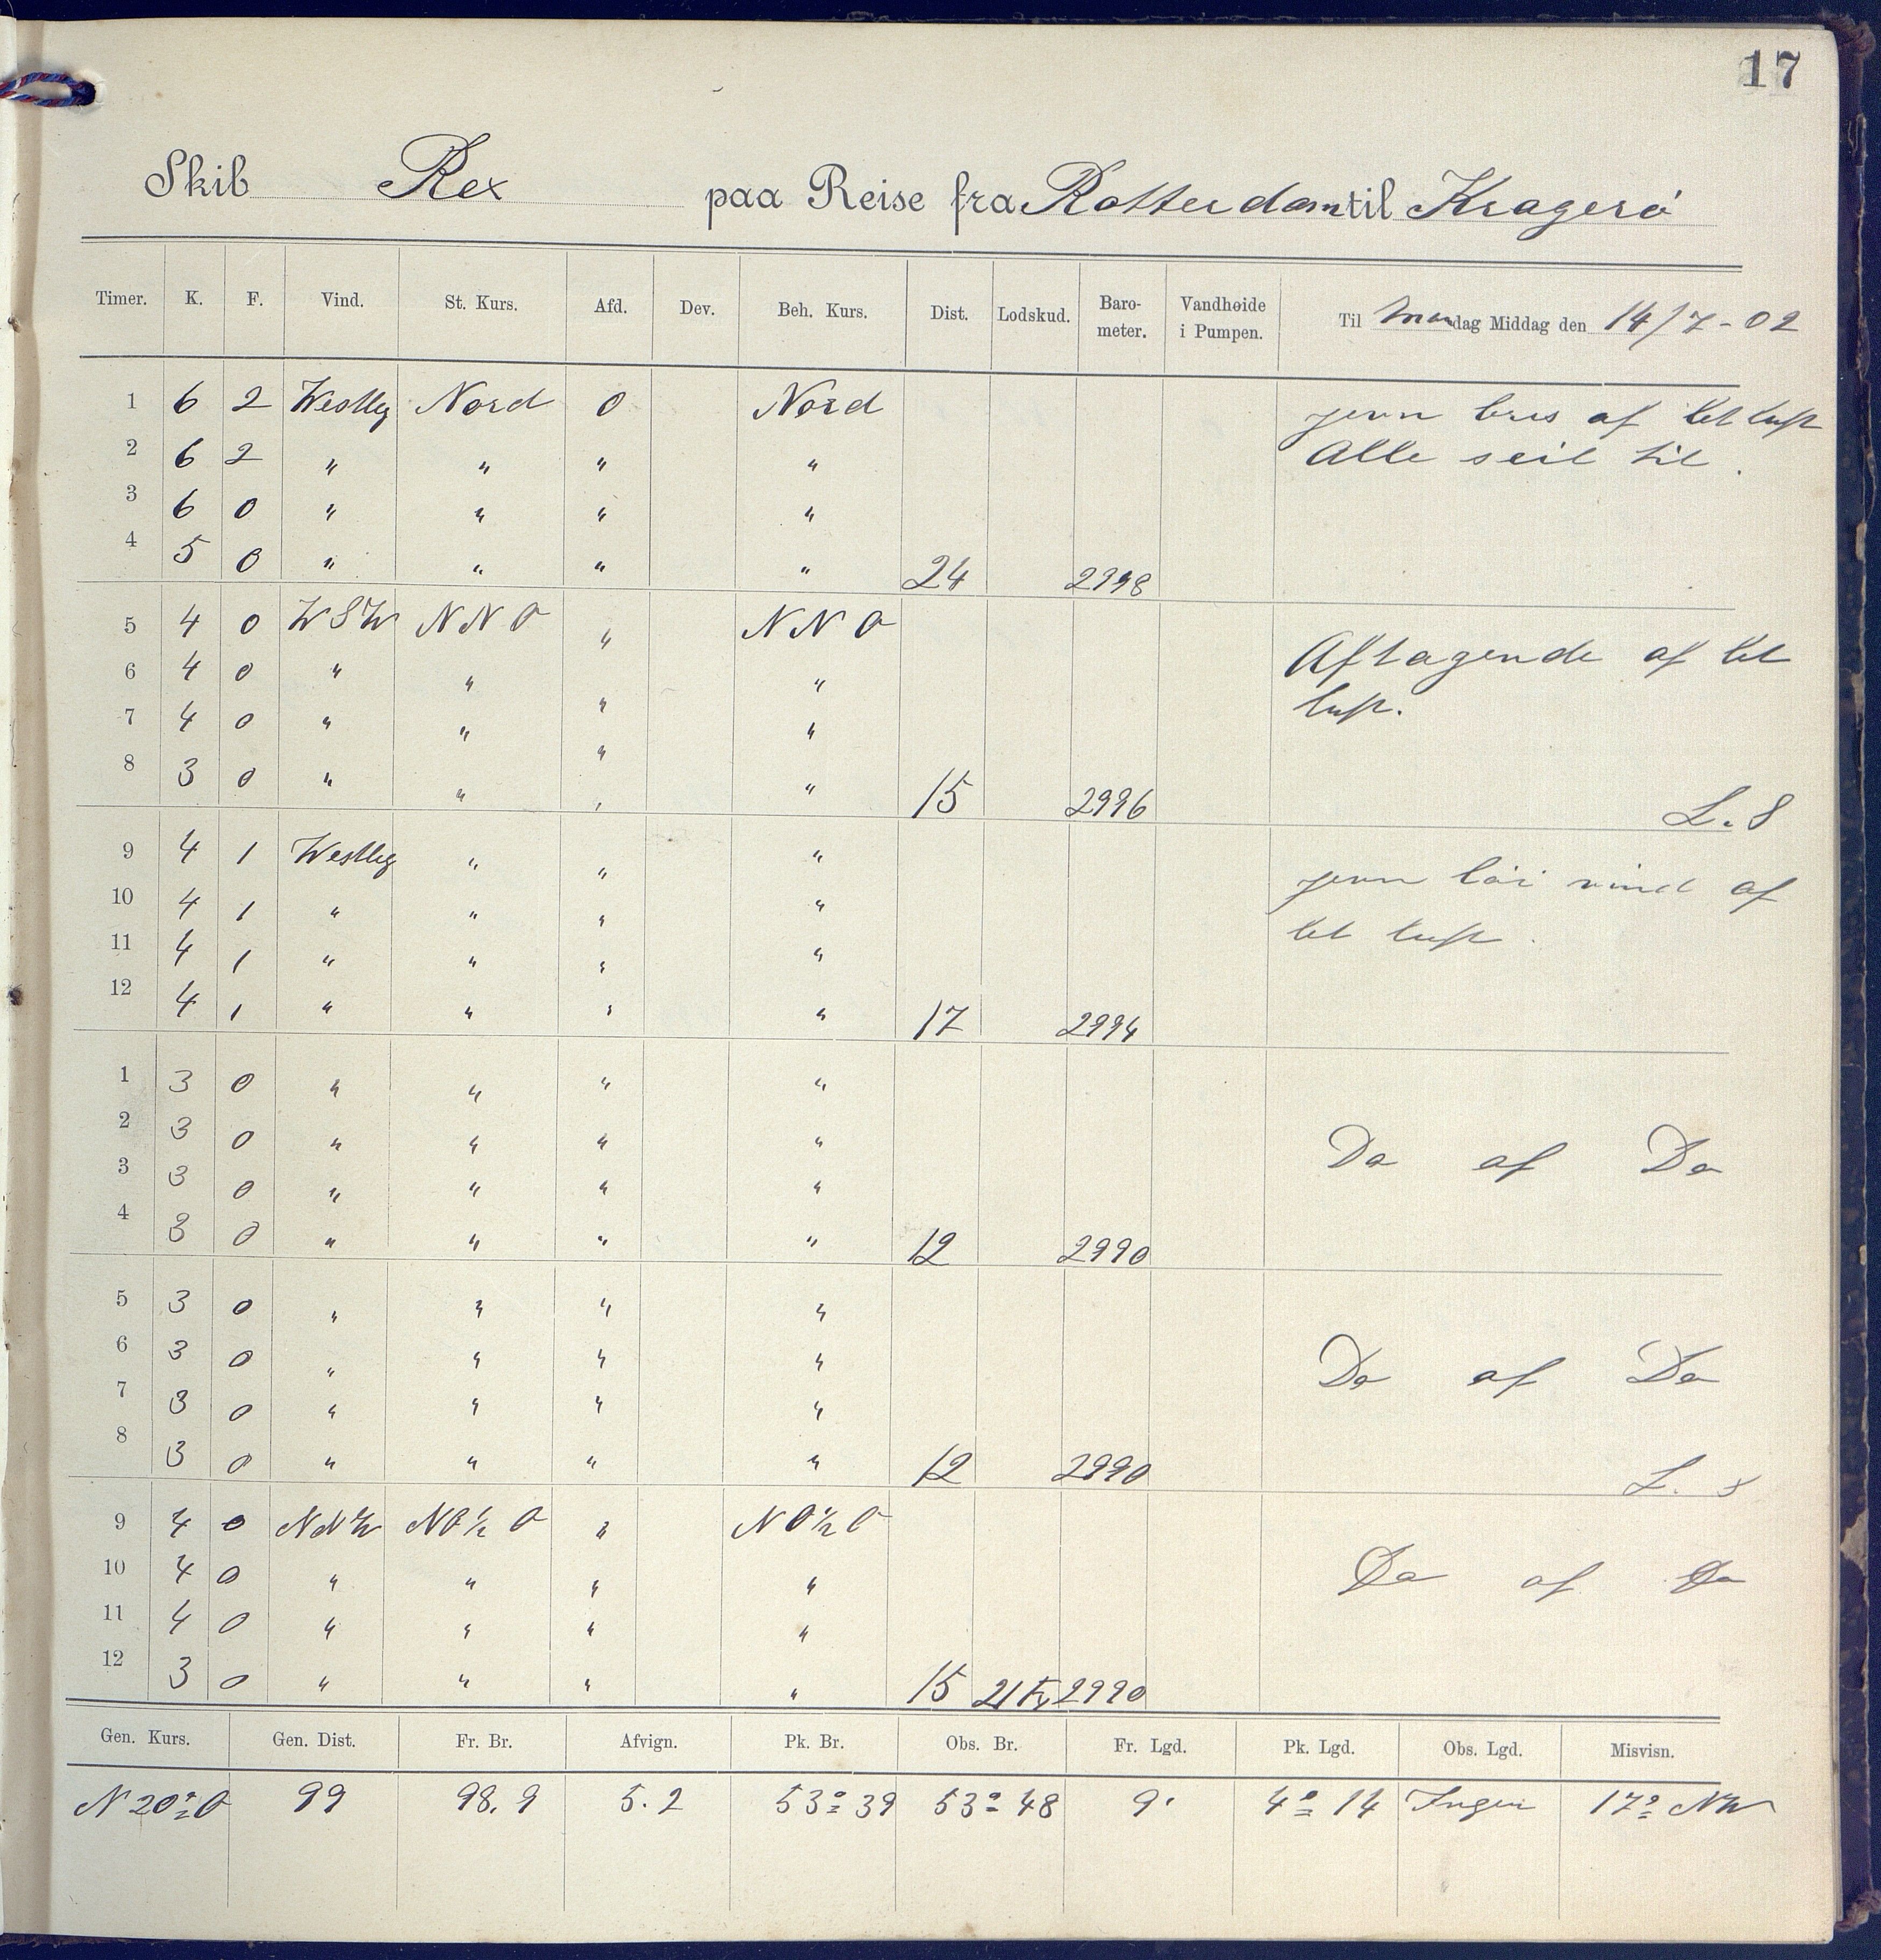 17
Skib Rex paa Reise fra Rotterdam til Kragerø
Timer. K. F. Vind. St. Kurs. Afd. Dev. Beh. Kurs. Dist. Lodskud. Baro-meter. Vandhøide i Pumpen. Til Mandag Middag den 14/7-02
1 6 2 Westleg Nord 0 Nord jevn bris af let luft
2 6 2 " " " " Alle seil til.
3 6 0 " " " "
4 5 0 " " " " 24 2998
5 4 0 WSW NNO " NNO Aftagende af let
6 4 0 " " " " luft.
7 4 0 " " " "
8 3 0 " " " " 15 2996 L.S
9 4 1 Westleg " " " jevn løi vind af
10 4 1 " " " " let luft.
11 4 1 " " " "
12 4 1 " " " " 17 2994
1 3 0 " " " "
2 3 0 " " " " Do af Do
3 3 0 " " " "
4 3 0 " " " " 12 2990
5 3 0 " " " "
6 3 0 " " " " Do af Do
7 3 0 " " " "
8 3 0 " " " " 12 2990 L.S
9 4 0 NNW NO½O " NO½O
10 4 0 " " " " Do af Do
11 4 0 " " " "
12 3 0 " " " " 15 21 2990
Gen. Kurs. Gen. Dist. Fr. Br. Afvign. Pk. Br. Obs. Br. Fr. Lgd. Pk. Lgd. Obs. Lgd. Misvisn.
N 20° O 99 98.9 5.2 53° 39 53° 48 9' 4° 14 Ingen 17° NW